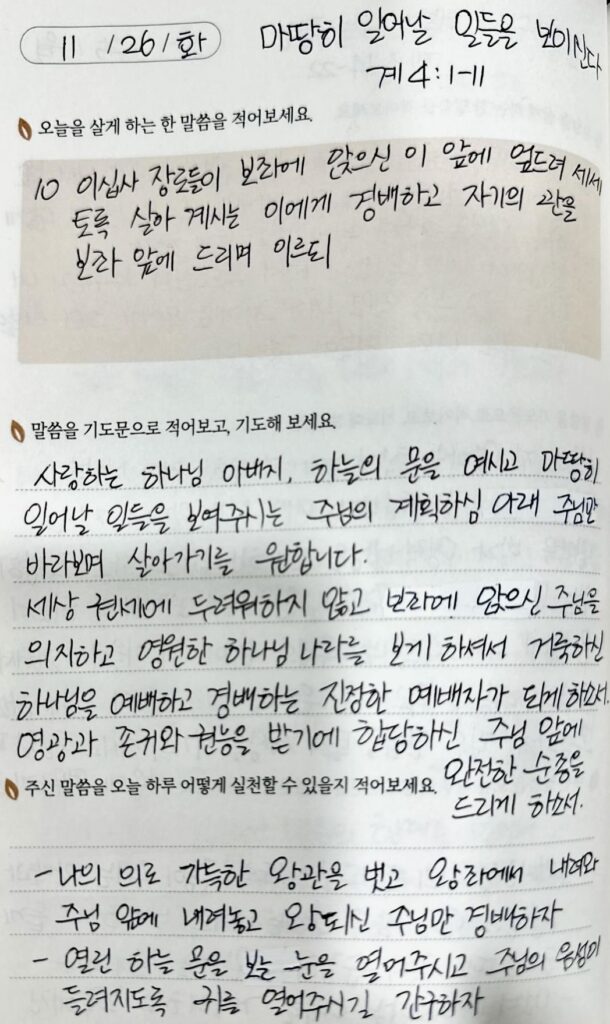 11 / 26 / 화
마땅히 일어날 일들을 보이신다
계 4 : 1-11
오늘을 살게 하는 한 말씀을 적어보세요.
10 이십사 장로들이 보좌에 앉으신 이 앞에 엎드려 세세
토록 살아 계시는 이에게 경배하고 자기의 관을
보좌 앞에 드리며 이르되
말씀을 기도문으로 적어보고, 기도해 보세요.
사랑하는 하나님 아버지, 하늘의 문을 여시고 마땅히
일어날 일들을 보여주시는 주님의 계획하심 아래 주님만
바라보며 살아가기를 원합니다.
세상 권세에 두려워하지 않고 보좌에 앉으신 주님을
의지하고 영원한 하나님 나라를 보게 하셔서 거룩하신
하나님을 예배하고 경배하는 진정한 예배자가 되게 하소서.
영광과 존귀와 권능을 받기에 합당하신 주님 앞에
완전한 순종을
드리게 하소서.
주신 말씀을 오늘 하루 어떻게 실천할 수 있을지 적어보세요.
- 나의 의로 가득한 왕관을 벗고 왕좌에서 내려와
주님 앞에 내려놓고 왕되신 주님만 경배하자
- 열린 하늘 문을 보는 눈을 열어주시고 주님의 음성이
들려지도록 귀를 열어주시길 간구하자